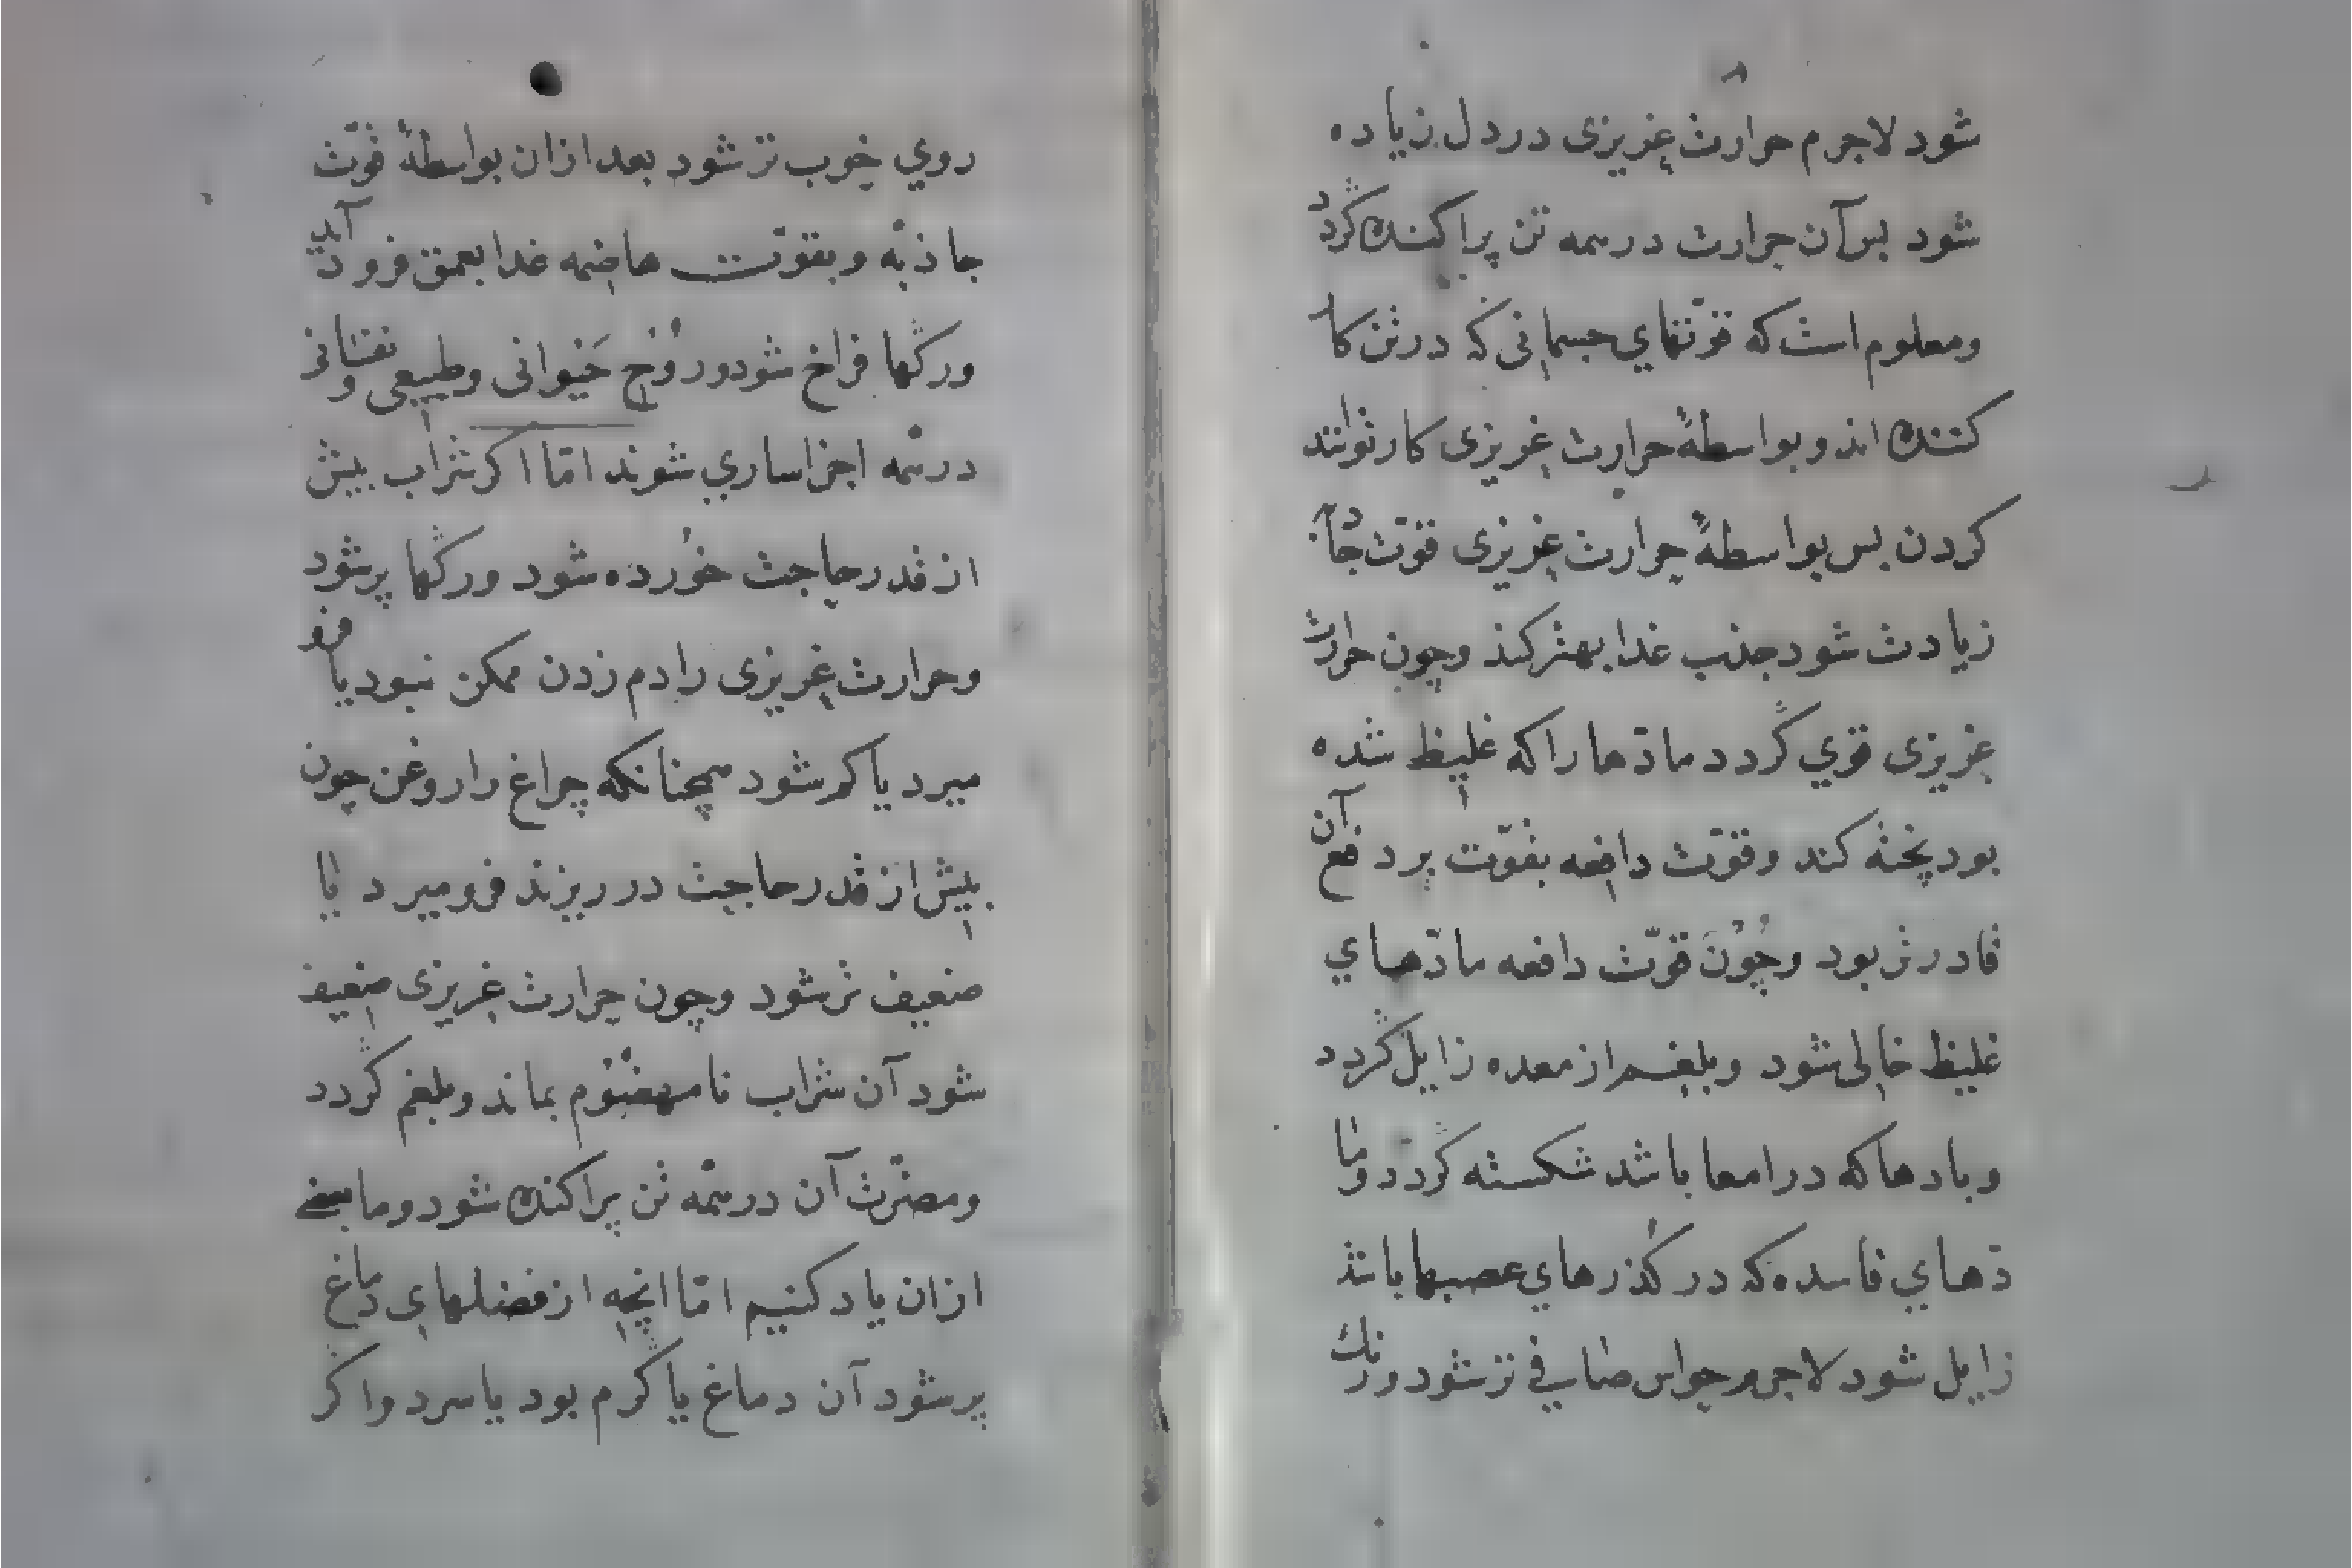 شود لاجرم حرارت غریزی در دل زیاده
شود بس آن حرارت در همه تن پراکنده گردد
ومعلوم است که قوّتهای جسمانی که در تن کار
کننده اند وبواسطهٔ حرارت غریزی کار توانند
کردن بس بواسطهٔ حرارت غریزی قوّت جاذ
زیادت شود جذب غذا بهتر کند وچون حرارت
غریزی قوی گردد مادّها را که غلیظ شده
بود پخته کند وقوّت دافعه بقوّت بر دفع آن
قادرتر بود وچُوْن قوّت دافعه مادّهای
غلیظ خالی شود وبلغم از معده زایل گردد
وبادها که در امعا باشد شکسته گردد وما
دّهای فاسده که در گذرهای عصبها باشد
زایل شود لاجرم حواس صافی تر شود ورنك
روی خوب تر شود بعد ازان بواسطهٔ قوّت
جاذبّه وبقوّت هاضمه غذا بعمق فرود آید
ورگها فراخ شود ورُوْح حَیْوانی وطبیعی ونفسانی
در همّه اجزا ساری شوند امّا اکر شراب بیش
از قدر حاجت خوُرده شود ورگها پر شود
وحرارت غریزی را دم زدن ممکن نبود یا فرو
میرد یا کم شود همچنانکه چراغ را روغن چون
بیش از قدر حاجت در ریزند فرو میرد یا
ضعیف تر شود وچون حرارت غریزی ضعیف
شود آن شراب نامهضُوْم بماند وبلغم گردد
ومضرّت آن در همّه تن پراکنده شود وما بعضی
ازان یاد کنیم امّا انچه از فضلهای دماغ
پر شود آن دماغ یا گرم بود یا سرد واگر